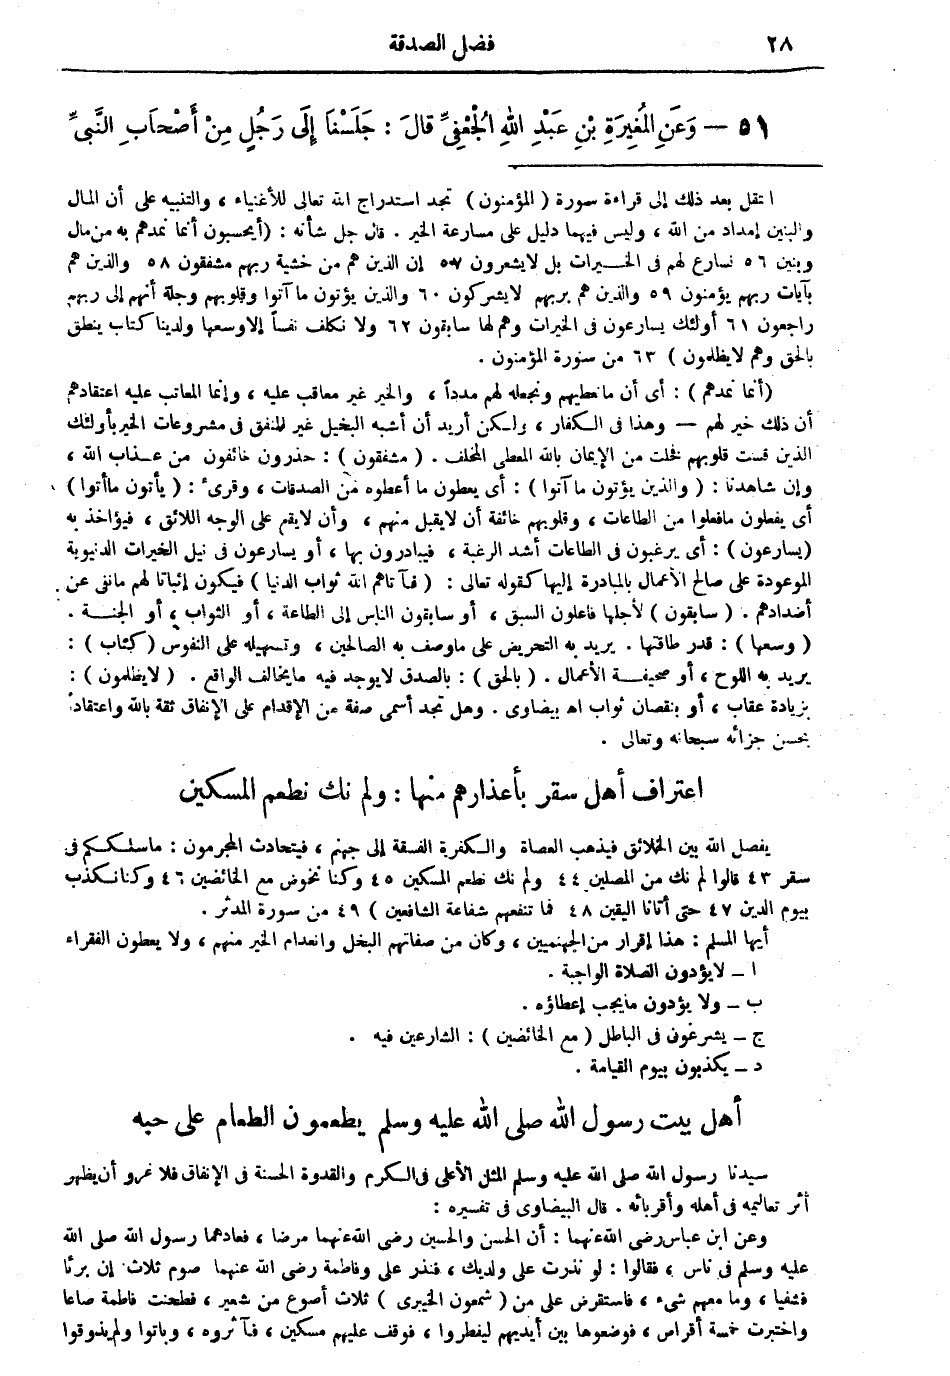 ٢٨ فضل الصدقة
٥١ – وَعَنِ المُغِيرَةِ بْنِ عَبْدِ اللهِ الْجُعْفِيِّ قالَ : جَلَسْنَا إِلَى رَجُلٍ مِنْ أَصْحَابِ النَّبِيِّ
انتقل بعد ذلك إلى قراءة سورة ( المؤمنون ) تجد استدراج الله تعالى للأغنياء ، والتنبيه على أن المال
والبنين إمداد من الله ، وليس فيهما دليل على مسارعة الخير . قال جل شأنه : (أيحسبون أنما نمدهم به من مال
وبنين ٥٦ نسارع لهم فى الخـيرات بل لايشعرون ٥٧ إن الذين هم من خشية ربهم مشفقون ٥٨ والذين هم
بآيات ربهم يؤمنون ٥٩ والذين هم بربهم لايشركون ٦٠ والذين يؤتون ما آتوا وقلوبهم وجلة أنهم إلى ربهم
راجعون ٦١ أولئك يسارعون فى الخيرات وهم لها سابقون ٦٢ ولا نكلف نفساً إلا وسعها ولدينا كتاب ينطق
بالحق وهم لايظلمون ) ٦٣ من سورة المؤمنون .
(أنما نمدهم ) : أى أن مانعطيهم ونجعله لهم مدداً ، والخير غير معاقب عليه ، وإنما المعاتب عليه اعتقادهم
أن ذلك خير لهم — وهذا فى الكفار ، ولكن أريد أن أشبه البخيل غير المنفق فى مشروعات الخير بأولئك
الذين قست قلوبهم فخلت من الإيمان بالله المعطى المخلف . ( مشفقون ) : حذرون خائفون من عذاب الله ،
وإن شاهدنا : ( والذين يؤتون ما آتوا ) : أى يعطون ما أعطوه من الصدقات ، وقرىء : ( يأتون ماأتوا )
أى يفعلون مافعلوا من الطاعات ، وقلوبهم خائفة أن لايقبل منهم ، وأن لايقع على الوجه اللائق ، فيؤاخذ به
(يسارعون ) : أى يرغبون فى الطاعات أشد الرغبة ، فيبادرون بها ، أو يسارعون فى نيل الخيرات الدنيوية
الموعودة على صالح الأعمال بالمبادرة إليها كقوله تعالى : ( فـآتاهم الله ثواب الدنيا ) فيكون إثباتا لهم مانفى عن
أضدادهم . ( سابقون ) لأجلها فاعلون السبق ، أو سابقون الناس إلى الطاعة ، أو الثواب ، أو الجنـة .
( وسعها ) : قدر طاقتها . يريد به التحريض على ماوصف به الصالحين ، وتسهيله على النفوس (كتاب ) :
يريد به اللوح ، أو صحيفـة الأعمال . ( بالحق ) : بالصدق لايوجد فيه مايخالف الواقع . ( لايظلمون ) :
بزيادة عقاب ، أو بنقصان ثواب اه بيضاوى . وهل تجد أسمى صفة من الإقدام على الإنفاق ثقة بالله واعتقاداً
بحسن جزائه سبحانه وتعالى .
اعتراف أهل سقر بأعذارهم منها : ولم نك نطعم المسكين
يفصل الله بين الخلائق فيذهب العصاة والكفرة الفسقة إلى جهنم ، فيتحادث المجرمون : ماسلككم فى
سقر ٤٣ قالوا لم نك من المصلين ٤٤ ولم نك نطعم المسكين ٤٥ وكنا نخوض مع الخائضين ٤٦ وكنا نكذب
بيوم الدين ٤٧ حتى أتانا اليقين ٤٨ فما تنفعهم شفاعة الشافعين ) ٤٩ من سورة المدثر .
أيها المسلم : هذا إقرار من الجهنميين ، وكان من صفاتهم البخل وانعدام الخير منهم ، ولا يعطون الفقراء
ا – لايؤدون الصلاة الواجبة .
ب – ولا يؤدون مايجب إعطاؤه .
ج – يشرعون فى الباطل ( مع الخائضين ) : الشارعين فيه .
د – يكذبون بيوم القيامة .
أهل بيت رسول الله صلى الله عليه وسلم يطعمون الطعام على حبه
سيدنا رسول الله صلى الله عليه وسلم المثل الأعلى فى الكرم والقدوة الحسنة فى الإنفاق فلا غرو أن يظهر
أثر تعاليمه فى أهله وأقربائه . قال البيضاوى فى تفسيره :
وعن ابن عباس رضى الله عنهما : أن الحسن والحسين رضى الله عنهما مرضا ، فعادهما رسول الله صلى الله
عليه وسلم فى ناس ، فقالوا : لو نذرت على ولديك ، فنذر على وفاطمة رضى الله عنهما صوم ثلاث إن برئا
فشفيا ، وما معهم شىء ، فاستقرض على من ( شمعون الخيبرى ) ثلاث أصوع من شعير ، فطحنت فاطمة صاعا
واختبزت خمسة أقراص ، فوضعوها بين أيديهم ليفطروا ، فوقف عليهم مسكين ، فـآثروه ، وباتوا ولم يذوقوا